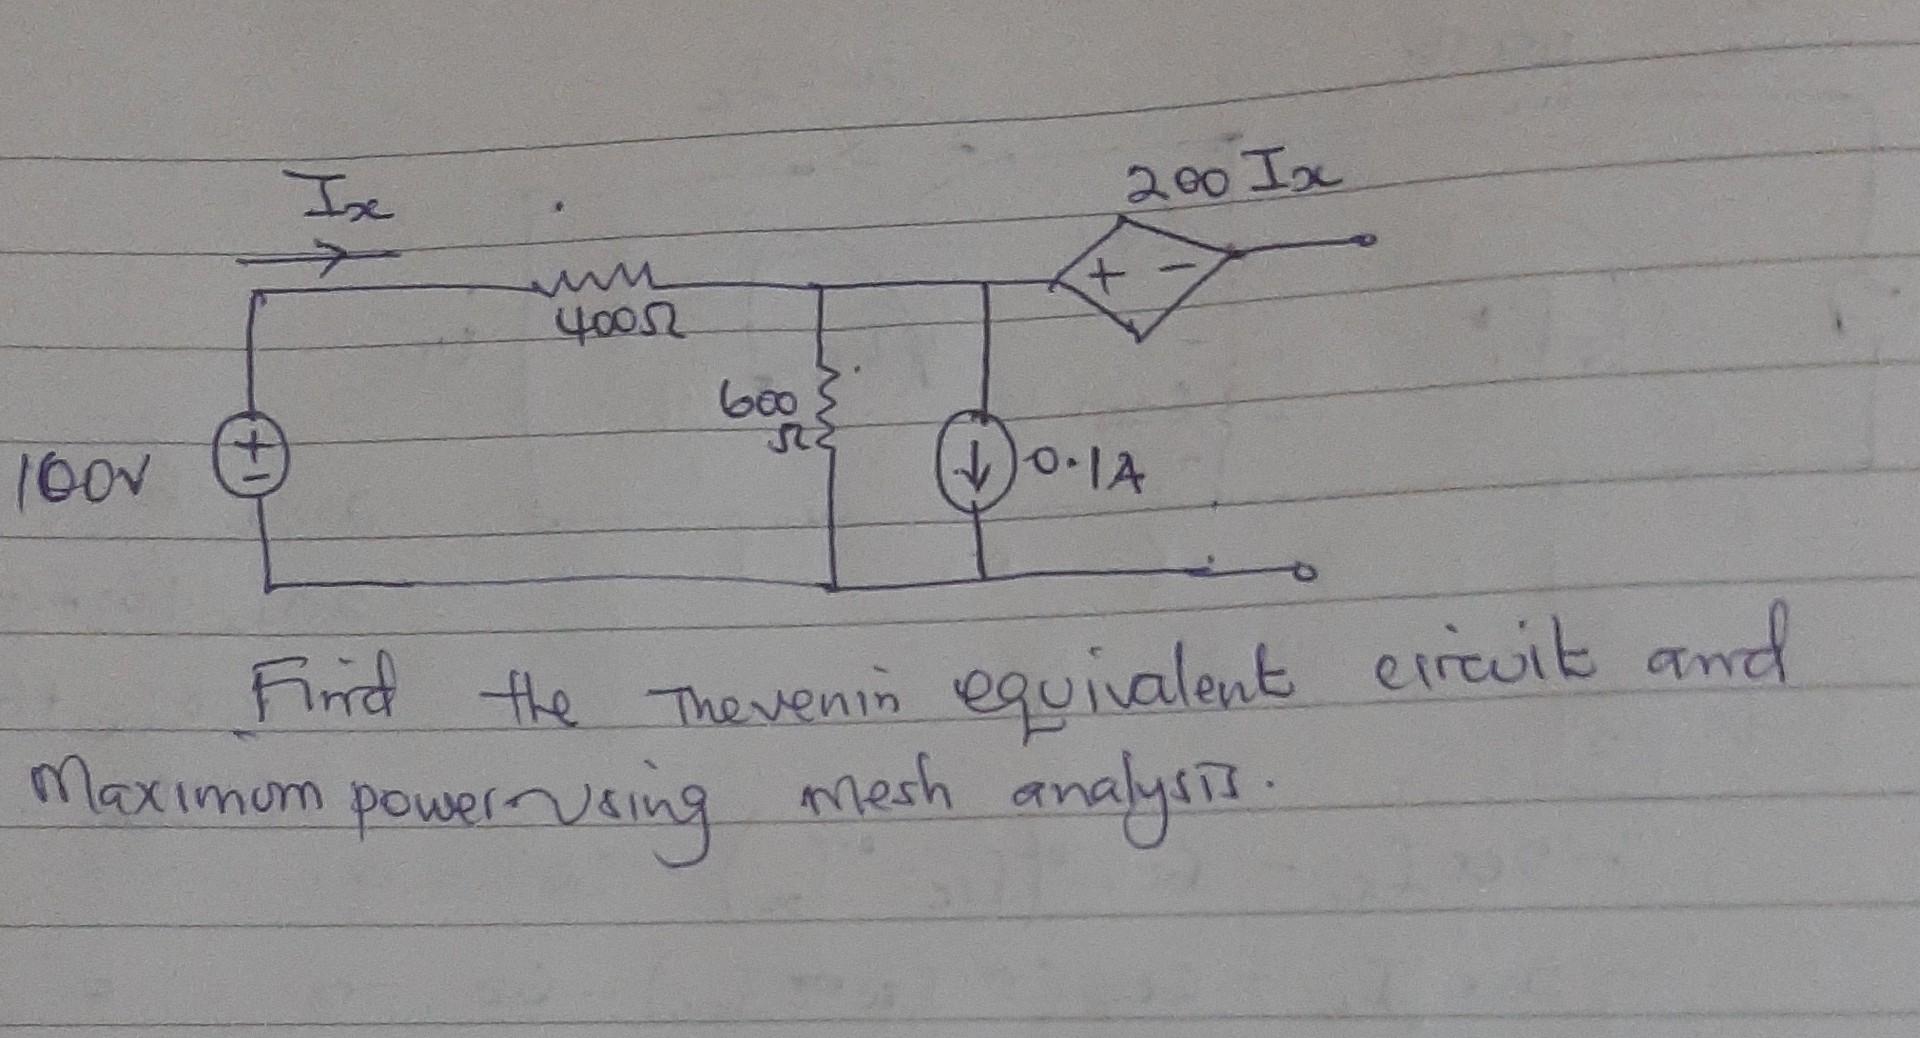 Ix
200 Ix
400Ω
600
Ω
100v
0.1A
Find the Thevenin equivalent circuit and
Maximum power using mesh analysis.